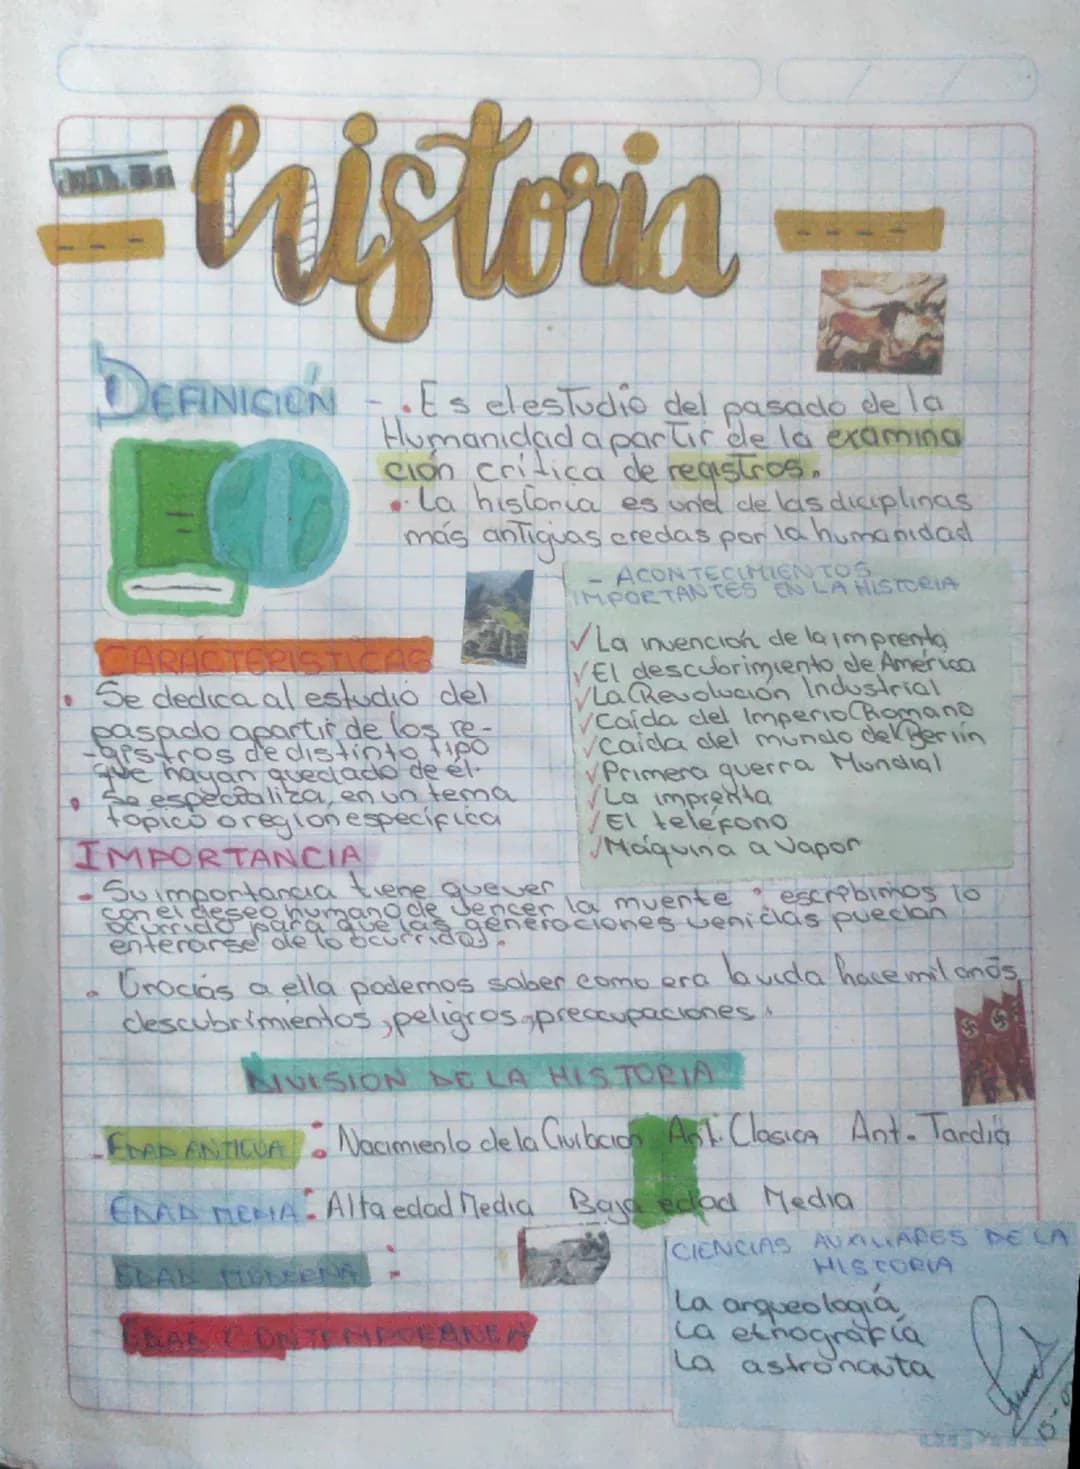 historia
DEFINICIÓN
- . Es el estudio del pasado de la
Humanidad a partir de la examina
ción crítica de registros.
. La historia es una de las diciplinas
más antiguas credas por la humanidad
- ACONTECIMIENTOS
IMPORTANTES EN LA HISTORIA
✓ La invención de la imprenta
✓ El descubrimiento de América
✓ La Revolución Industrial
✓ Caída del Imperio Romano
✓ Caida del mundo del Berlín
✓ Primera guerra Mundial
✓ La imprenta
✓ El teléfono
✓ Máquina a Vapor
CARACTERISTICAS
• Se dedica al estudio del
pasado apartir de los re-
-gistros de distinto tipo
que hayan quedado de él.
• Se especializa, en un tema
topico o region específica
IMPORTANCIA
- Su importancia tiene que ver
con el deseo humano de vencer la muente : escribimos lo
ocurrido para que las generaciones venidas puedan
enterarse de lo ocurrido.
. Gracias a ella podemos saber como era la vida hace mil años,
descubrimientos, peligros, preocupaciones.
DIVISION DE LA HISTORIA
- EDAD ANTIGUA : Nacimiento de la Ant. Clasica Ant. Tardia
EDAD MEDIA : Alta edad Media Baja edad Media
EDAD MODERNA :
EDAD CONTEMPORANEA
CIENCIAS AUXILIARES DE LA
HISTORIA
La arqueología
La etnografía
La astronauta